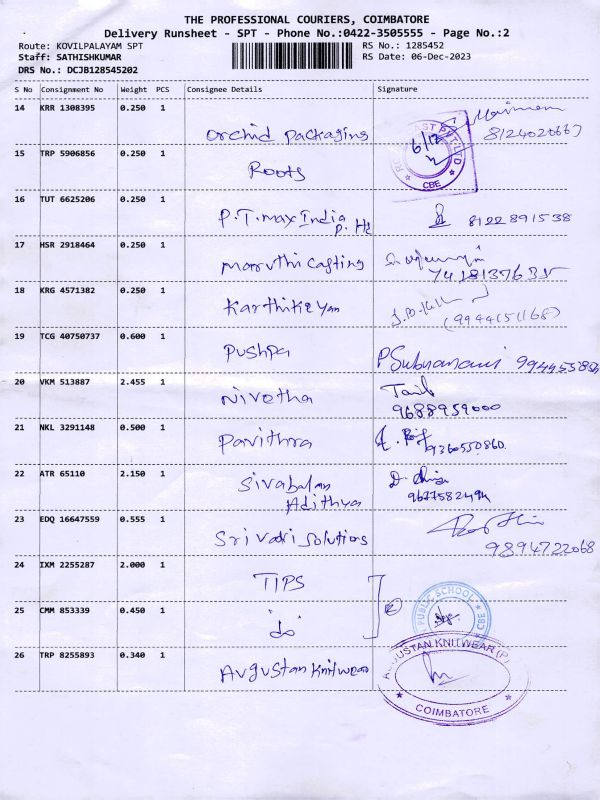 THE PROFESSIONAL COURIERS, COIMBATORE
Delivery Runsheet - SPT - Phone No.:0422-3505555 - Page No.:2
Route: KOVILPALAYAM SPT
RS No.: 1285452
Staff: SATHISHKUMAR
RS Date: 06-Dec-2023
DRS No.: DCJB128545202
S No Consignment No Weight PCS Consignee Details Signature
14 KRR 1308395 0.250 1
Orchid Packaging
8124020667
15 TRP 5906856 0.250 1
Roots
6/12
CBE
16 TUT 6625206 0.250 1
P.T.max India
P. Ltd
8122891538
17 HSR 2918464 0.250 1
Maruthi Casting
18 KRG 4571382 0.250 1
Karthikeyan
(9944151168)
19 TCG 40750737 0.600 1
Pushpa
P Subramani
20 VKM 513887 2.455 1
Nivetha
9688959000
21 NKL 3291148 0.500 1
Pavithra
9360550860
22 ATR 65110 2.150 1
Sivabalan
Adithya
9677582494
23 EDQ 16647559 0.555 1
Sri Vari Solutions
9894722068
24 IXM 2255287 2.000 1
TIPS
25 CMM 853339 0.450 1
"do"
2
PUBLIC SCHOOL
CBE
26 TRP 8255893 0.340 1
Augustan Knitwear
AUGUSTAN KNITWEAR (P)
COIMBATORE